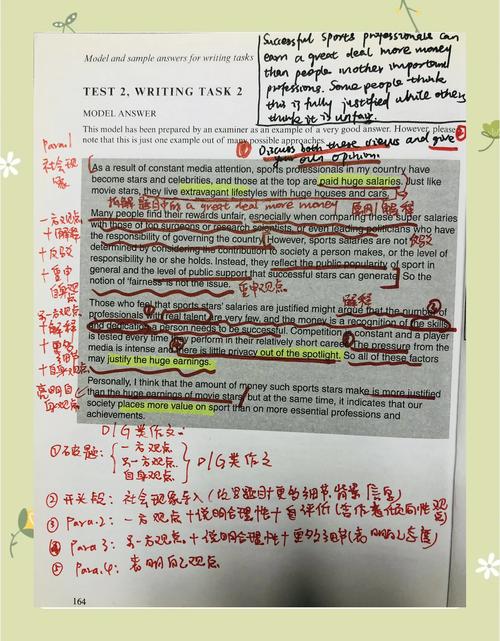 Successful sports professionals can
earn a great deal more money
than people in other important
professions. Some people think
this is fully justified while others
think it is unfair.
① Discuss both these views and give ②
your own opinion.
Model and sample answers for writing tasks
TEST 2, WRITING TASK 2
MODEL ANSWER
This model has been prepared by an examiner as an example of a very good answer. However, please
note that this is just one example out of many possible approaches.
Para.1
社会现象
As a result of constant media attention, sports professionals in my country have
become stars and celebrities, and those at the top are paid huge salaries. Just like
movie stars, they live extravagant lifestyles with huge houses and cars.
拆解题目中的 a great deal more money
原因/解释
Many people find their rewards unfair, especially when comparing these super salaries
with those of top surgeons or research scientists, or even leading politicians who have
the responsibility of governing the country. However, sports salaries are not 反驳
determined by considering the contribution to society a person makes, or the level of
responsibility he or she holds. Instead, they reflect the public popularity of sport in
general and the level of public support that successful stars can generate. So the
notion of 'fairness' is not the issue. 重申观点
一方观点
+解释
+反驳
+重申
自身观点
解释
Those who feel that sports stars' salaries are justified might argue that the number of
professionals with real talent are very few, and the money is a recognition of the skills
and dedication a person needs to be successful. Competition is constant and a player
is tested every time they perform in their relatively short career. The pressure from the
media is intense and there is little privacy out of the spotlight. So all of these factors
may justify the huge earnings.
另一方观点
+解释
+更多
细节
+自身观点
Personally, I think that the amount of money such sports stars make is more justified
than the huge earnings of movie stars, but at the same time, it indicates that our
society places more value on sport than on more essential professions and
achievements.
亮明自
身观点
D/G类作文:
①石皮题: 一方观点
另一方观点
自身观点
D/G类作文
② 开头段: 社会现象导入(使用题目中更多细节,背景信息)
③ Para.2: 一方观点+说明合理性+自评价(含作者倾向性观点)
④ Para 3: 另一方观点+说明合理性+更多细节(表明自己态度)
⑤ Para.4: 表明自己观点
164